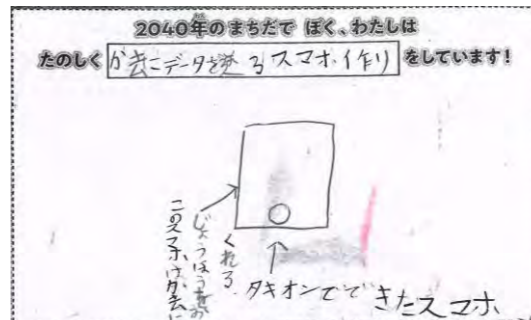 2040年のまちだで ぼく、わたしは
たのしく が去にデータを送るスマホ作り をしています!
このスマホはが去に
じょうほうをお
くれる
タキオンでできたスマホ